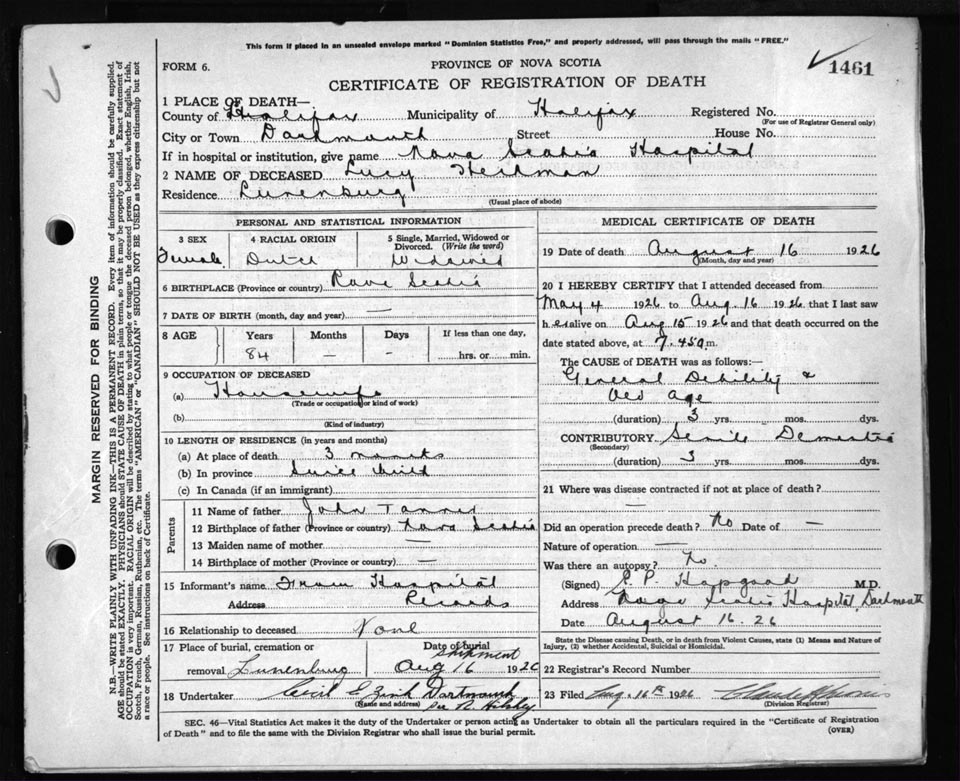 This form if placed in an unsealed envelope marked "Dominion Statistics Free," and properly addressed, will pass through the mails "FREE."
FORM 6.
PROVINCE OF NOVA SCOTIA
1461
CERTIFICATE OF REGISTRATION OF DEATH
1 PLACE OF DEATH—
County of Halifax Municipality of Halifax Registered No.
(For use of Registrar General only)
City or Town Dartmouth Street House No.
If in hospital or institution, give name Nova Scotia Hospital
2 NAME OF DECEASED Lucy Heckman
Residence Lunenburg
(Usual place of abode)
PERSONAL AND STATISTICAL INFORMATION
3 SEX 4 RACIAL ORIGIN 5 Single, Married, Widowed or Divorced. (Write the word)
Female Dutch Widowed
6 BIRTHPLACE (Province or country) Nova Scotia
7 DATE OF BIRTH (month, day and year) —
8 AGE Years Months Days If less than one day,
84 — - hrs. or min.
9 OCCUPATION OF DECEASED
(a) Housewife
(Trade or occupation or kind of work)
(b)
(Kind of industry)
10 LENGTH OF RESIDENCE (in years and months)
(a) At place of death 3 months
(b) In province Since Child
(c) In Canada (if an immigrant)
Parents
11 Name of father John Tanner
12 Birthplace of father (Province or country) Nova Scotia
13 Maiden name of mother —
14 Birthplace of mother (Province or country) —
15 Informant's name From Hospital
Address Records
16 Relationship to deceased None
17 Place of burial, cremation or removal Lunenburg
Date of burial
shipment
Aug 16 1926
18 Undertaker Cecil E Zink Dartmouth
(Name and address) per R
MEDICAL CERTIFICATE OF DEATH
19 Date of death August 16 1926
(Month, day and year)
20 I HEREBY CERTIFY that I attended deceased from
May 4 1926 to Aug. 16 1926 that I last saw
h er alive on Aug 15 1926 and that death occurred on
date stated above, at 7.45 m.
The CAUSE OF DEATH was as follows:—
General Debility &
Old Age
(duration) 3 yrs. mos. dys.
CONTRIBUTORY Senile Dementia
(Secondary)
(duration) 3 yrs. mos. dys.
21 Where was disease contracted if not at place of death?
—
Did an operation precede death? No Date of —
Nature of operation —
Was there an autopsy? No.
(Signed) E. P. Hapgood M.D.
Address Nova Scotia Hospital, Dartmouth
Date August 16. 26
State the Disease causing Death, or in death from Violent Causes, state (1) Means and Nature of
Injury, (2) whether Accidental, Suicidal or Homicidal.
22 Registrar's Record Number
23 Filed Aug. 16th 1926
(Division Registrar)
SEC. 46—Vital Statistics Act makes it the duty of the Undertaker or person acting as Undertaker to obtain all the particulars required in the "Certificate of Registration
of Death" and to file the same with the Division Registrar who shall issue the burial permit.
(OVER)
MARGIN RESERVED FOR BINDING
N.B.—WRITE PLAINLY WITH UNFADING INK—THIS IS A PERMANENT RECORD. Every item of information should be carefully supplied.
AGE should be stated EXACTLY. PHYSICIANS should STATE CAUSE OF DEATH in plain terms, so that it may be properly classified. Exact statement of
OCCUPATION is very important. RACIAL ORIGIN will be described by stating to what people or tongue the deceased person belonged, whether English, Irish,
Scotch, French, German, Russian, Ruthenian, etc. The terms "AMERICAN" or "CANADIAN" SHOULD NOT BE USED as they express citizenship but not
a race or people. See instructions on back of Certificate.